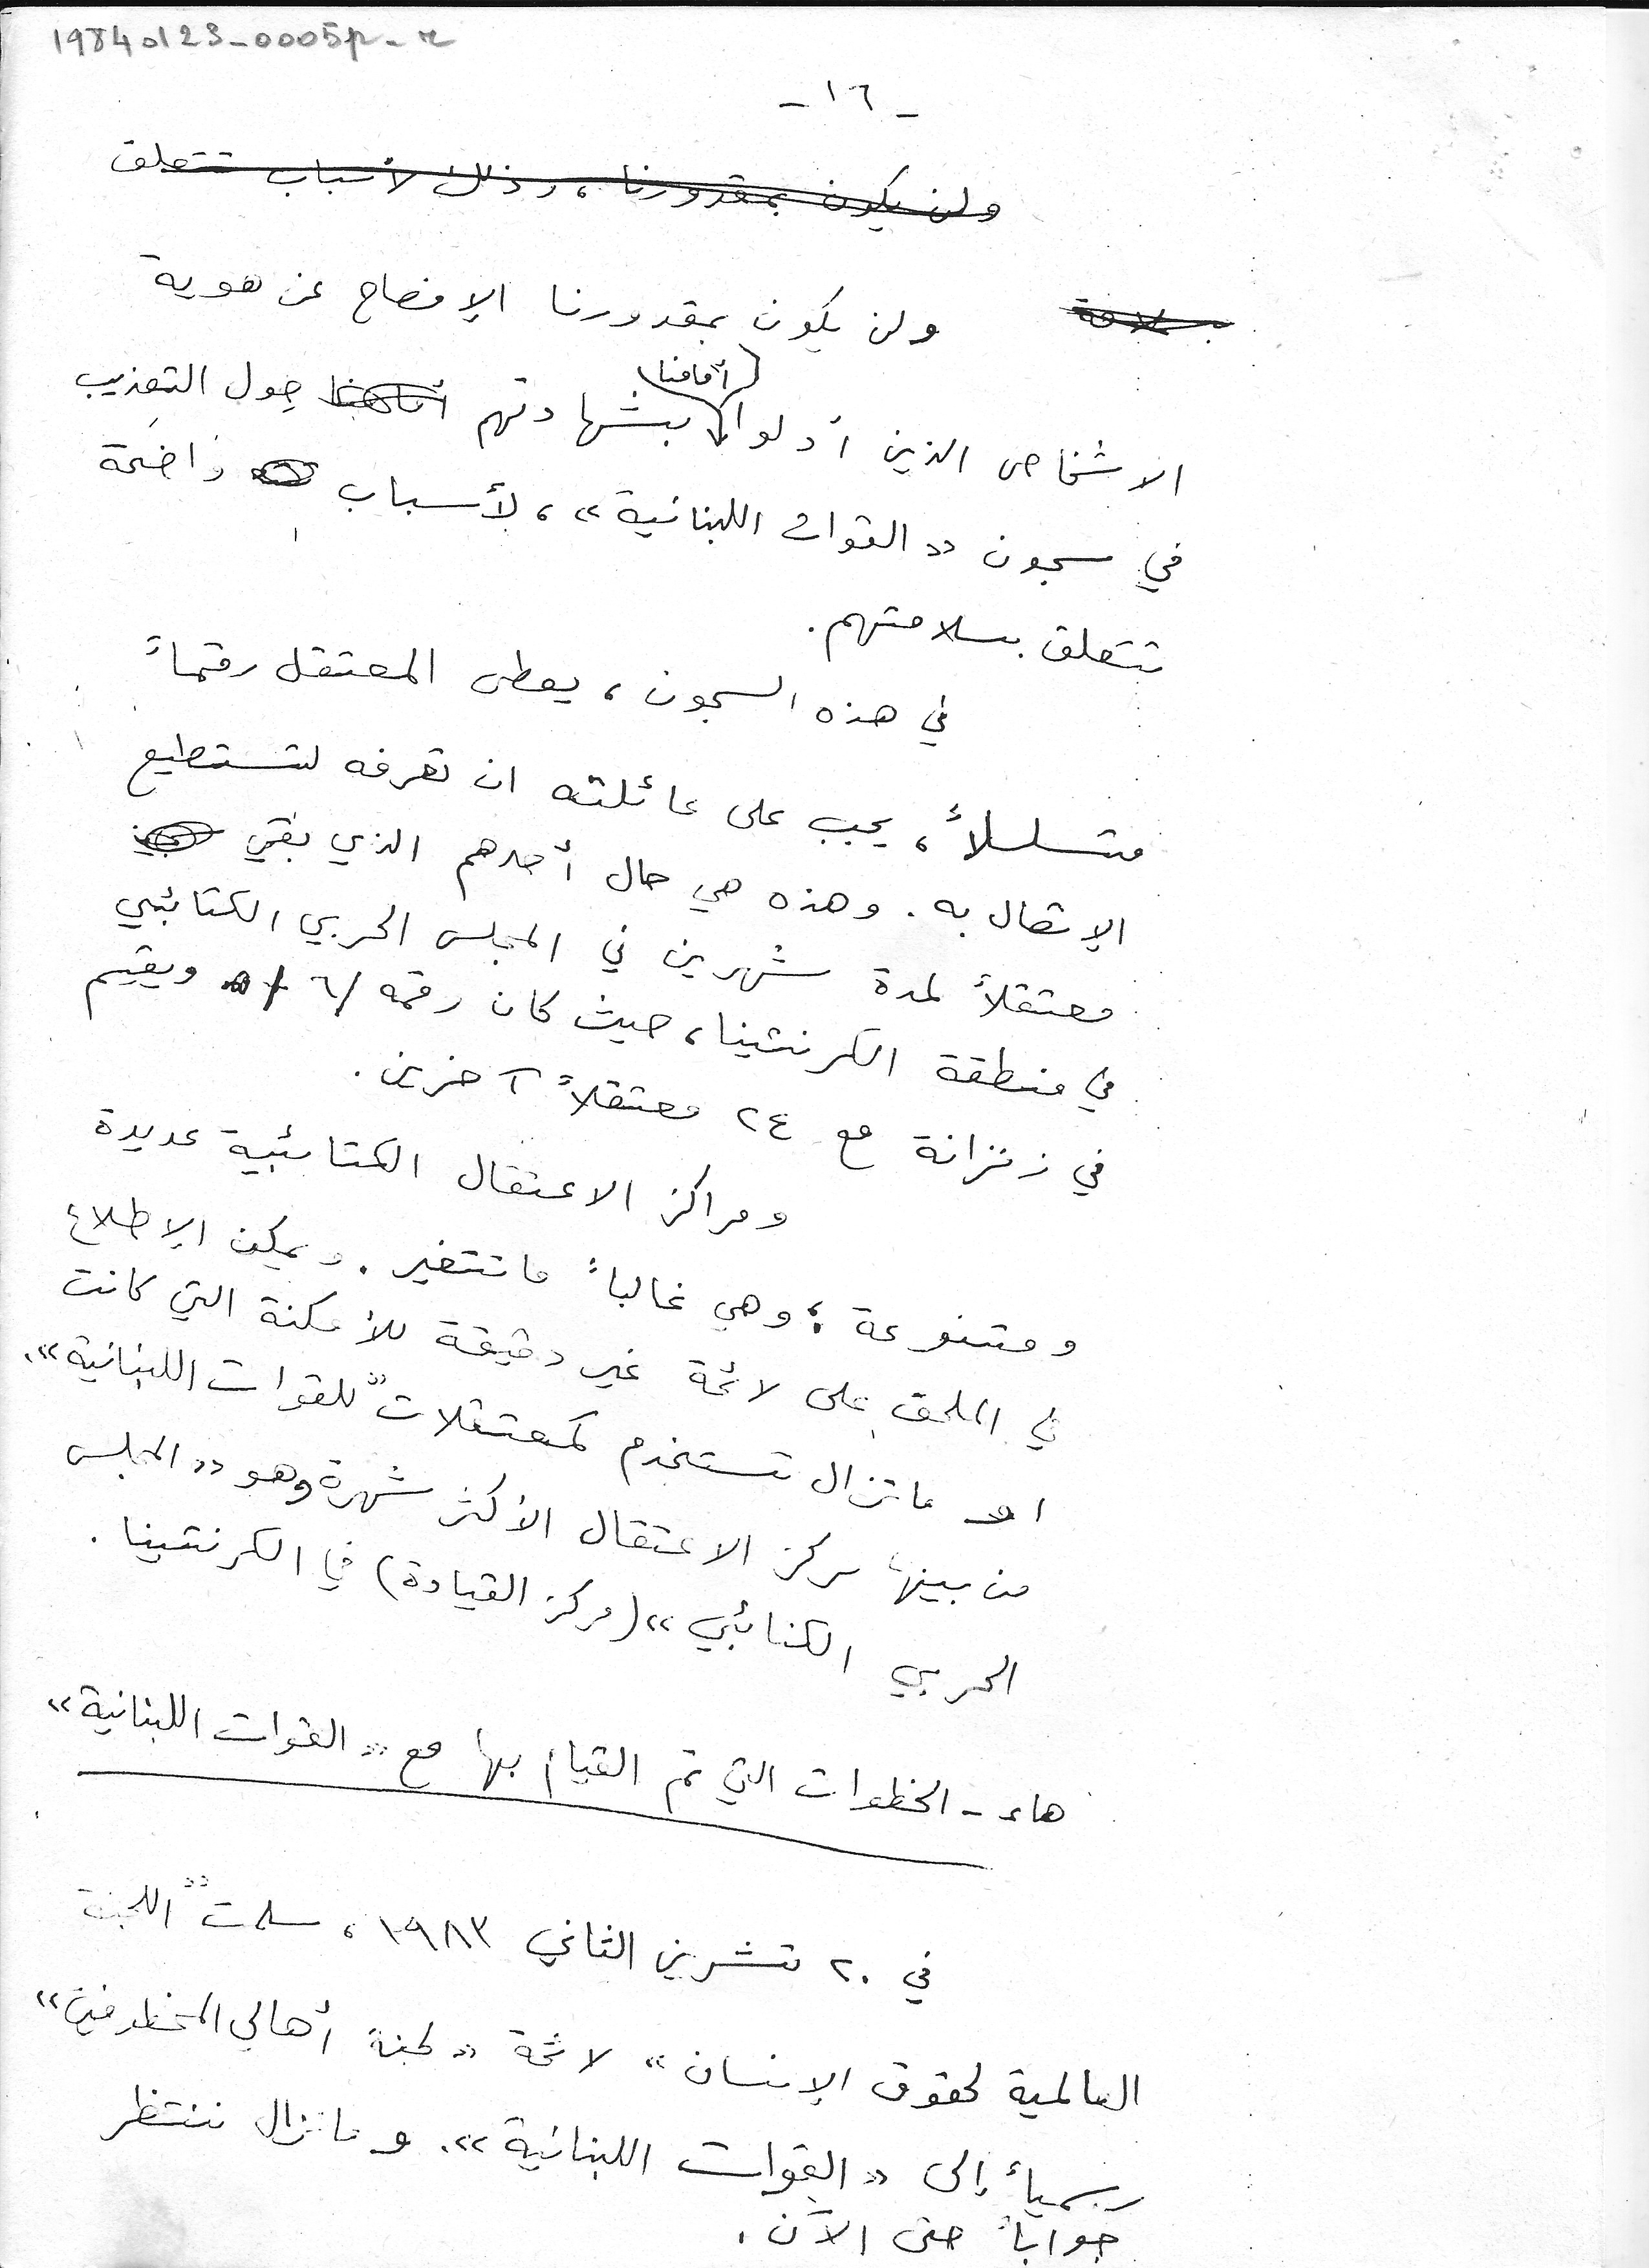 19840123-0005p-r
- ١٦ -
ولن يكون بمقدورنا، وذلك لأسباب تتعلق
ولن يكون بمقدورنا الإفصاح عن هوية
أمامنا
الاشخاص الذين أدلوا بشهادتهم أمامنا حول التعذيب
في سجون «القوات اللبنانية»، لأسباب واضحة
تتعلق بسلامتهم.
في هذه السجون، يعطى المعتقل رقماً
متسلسلاً، يجب على عائلته ان تعرفه لتستطيع
الإتصال به. وهذه هي حال أحدهم الذي بقي
معتقلاً لمدة شهرين في المجلس الحربي الكتائبي
في منطقة الكرنتينا، حيث كان رقمه /٦/ ويقيم
في زنزانة مع ٢٤ معتقلاً آخرين.
ومراكز الاعتقال الكتائبية عديدة
ومتنوعة؛ وهي غالباً ماتتغير. ويمكن الإطلاع
في الملحق على لائحة غير دقيقة للأمكنة التي كانت
او ماتزال تستخدم كمعتقلات "للقوات اللبنانية".
من بينها مركز الاعتقال الأكثر شهرة وهو «المجلس
الحربي الكتائبي» (مركز القيادة) في الكرنتينا.
هاء - الخطوات التي تم القيام بها مع «القوات اللبنانية»
في ٢٠ تشرين الثاني ١٩٨٣، سلمت "اللجنة
العالمية لحقوق الإنسان" لائحة «لجنة أهالي المخطوفين»
رسمياً إلى «القوات اللبنانية». وما نزال ننتظر
جواباً حتى الآن.